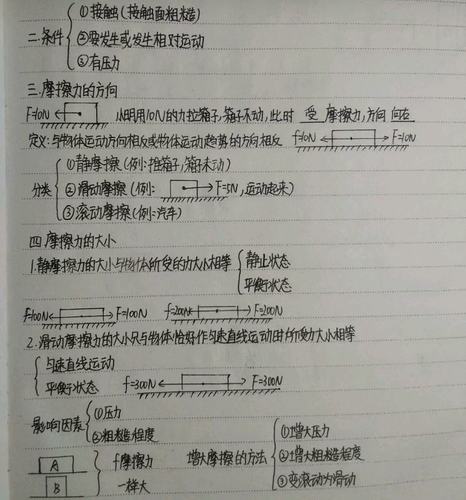 二.条件
①接触(接触面粗糙)
②要发生或发生相对运动
③有压力
三.摩擦力的方向
F=10N 小明用10N的力拉箱子,箱子不动,此时 受 摩擦力,方向 向右
定义:与物体运动方向相反或物体运动趋势的方向相反 f=10N F=10N
分类
①静摩擦(例:推箱子,箱未动)
②滑动摩擦(例: F=5N,运动起来)
③滚动摩擦(例:汽车)
四 摩擦力的大小
1.静摩擦力的大小与物体所受的力大小相等
静止状态
平衡状态
f=100N F=100N f=200N F=200N
2.滑动摩擦力的大小只与物体恰好作匀速直线运动时所受力大小相等
匀速直线运动
平衡状态 f=300N F=300N
影响因素
①压力
②粗糙程度
A
B
f摩擦力
一样大
增大摩擦的方法
①增大压力
②增大粗糙程度
③变滚动为滑动